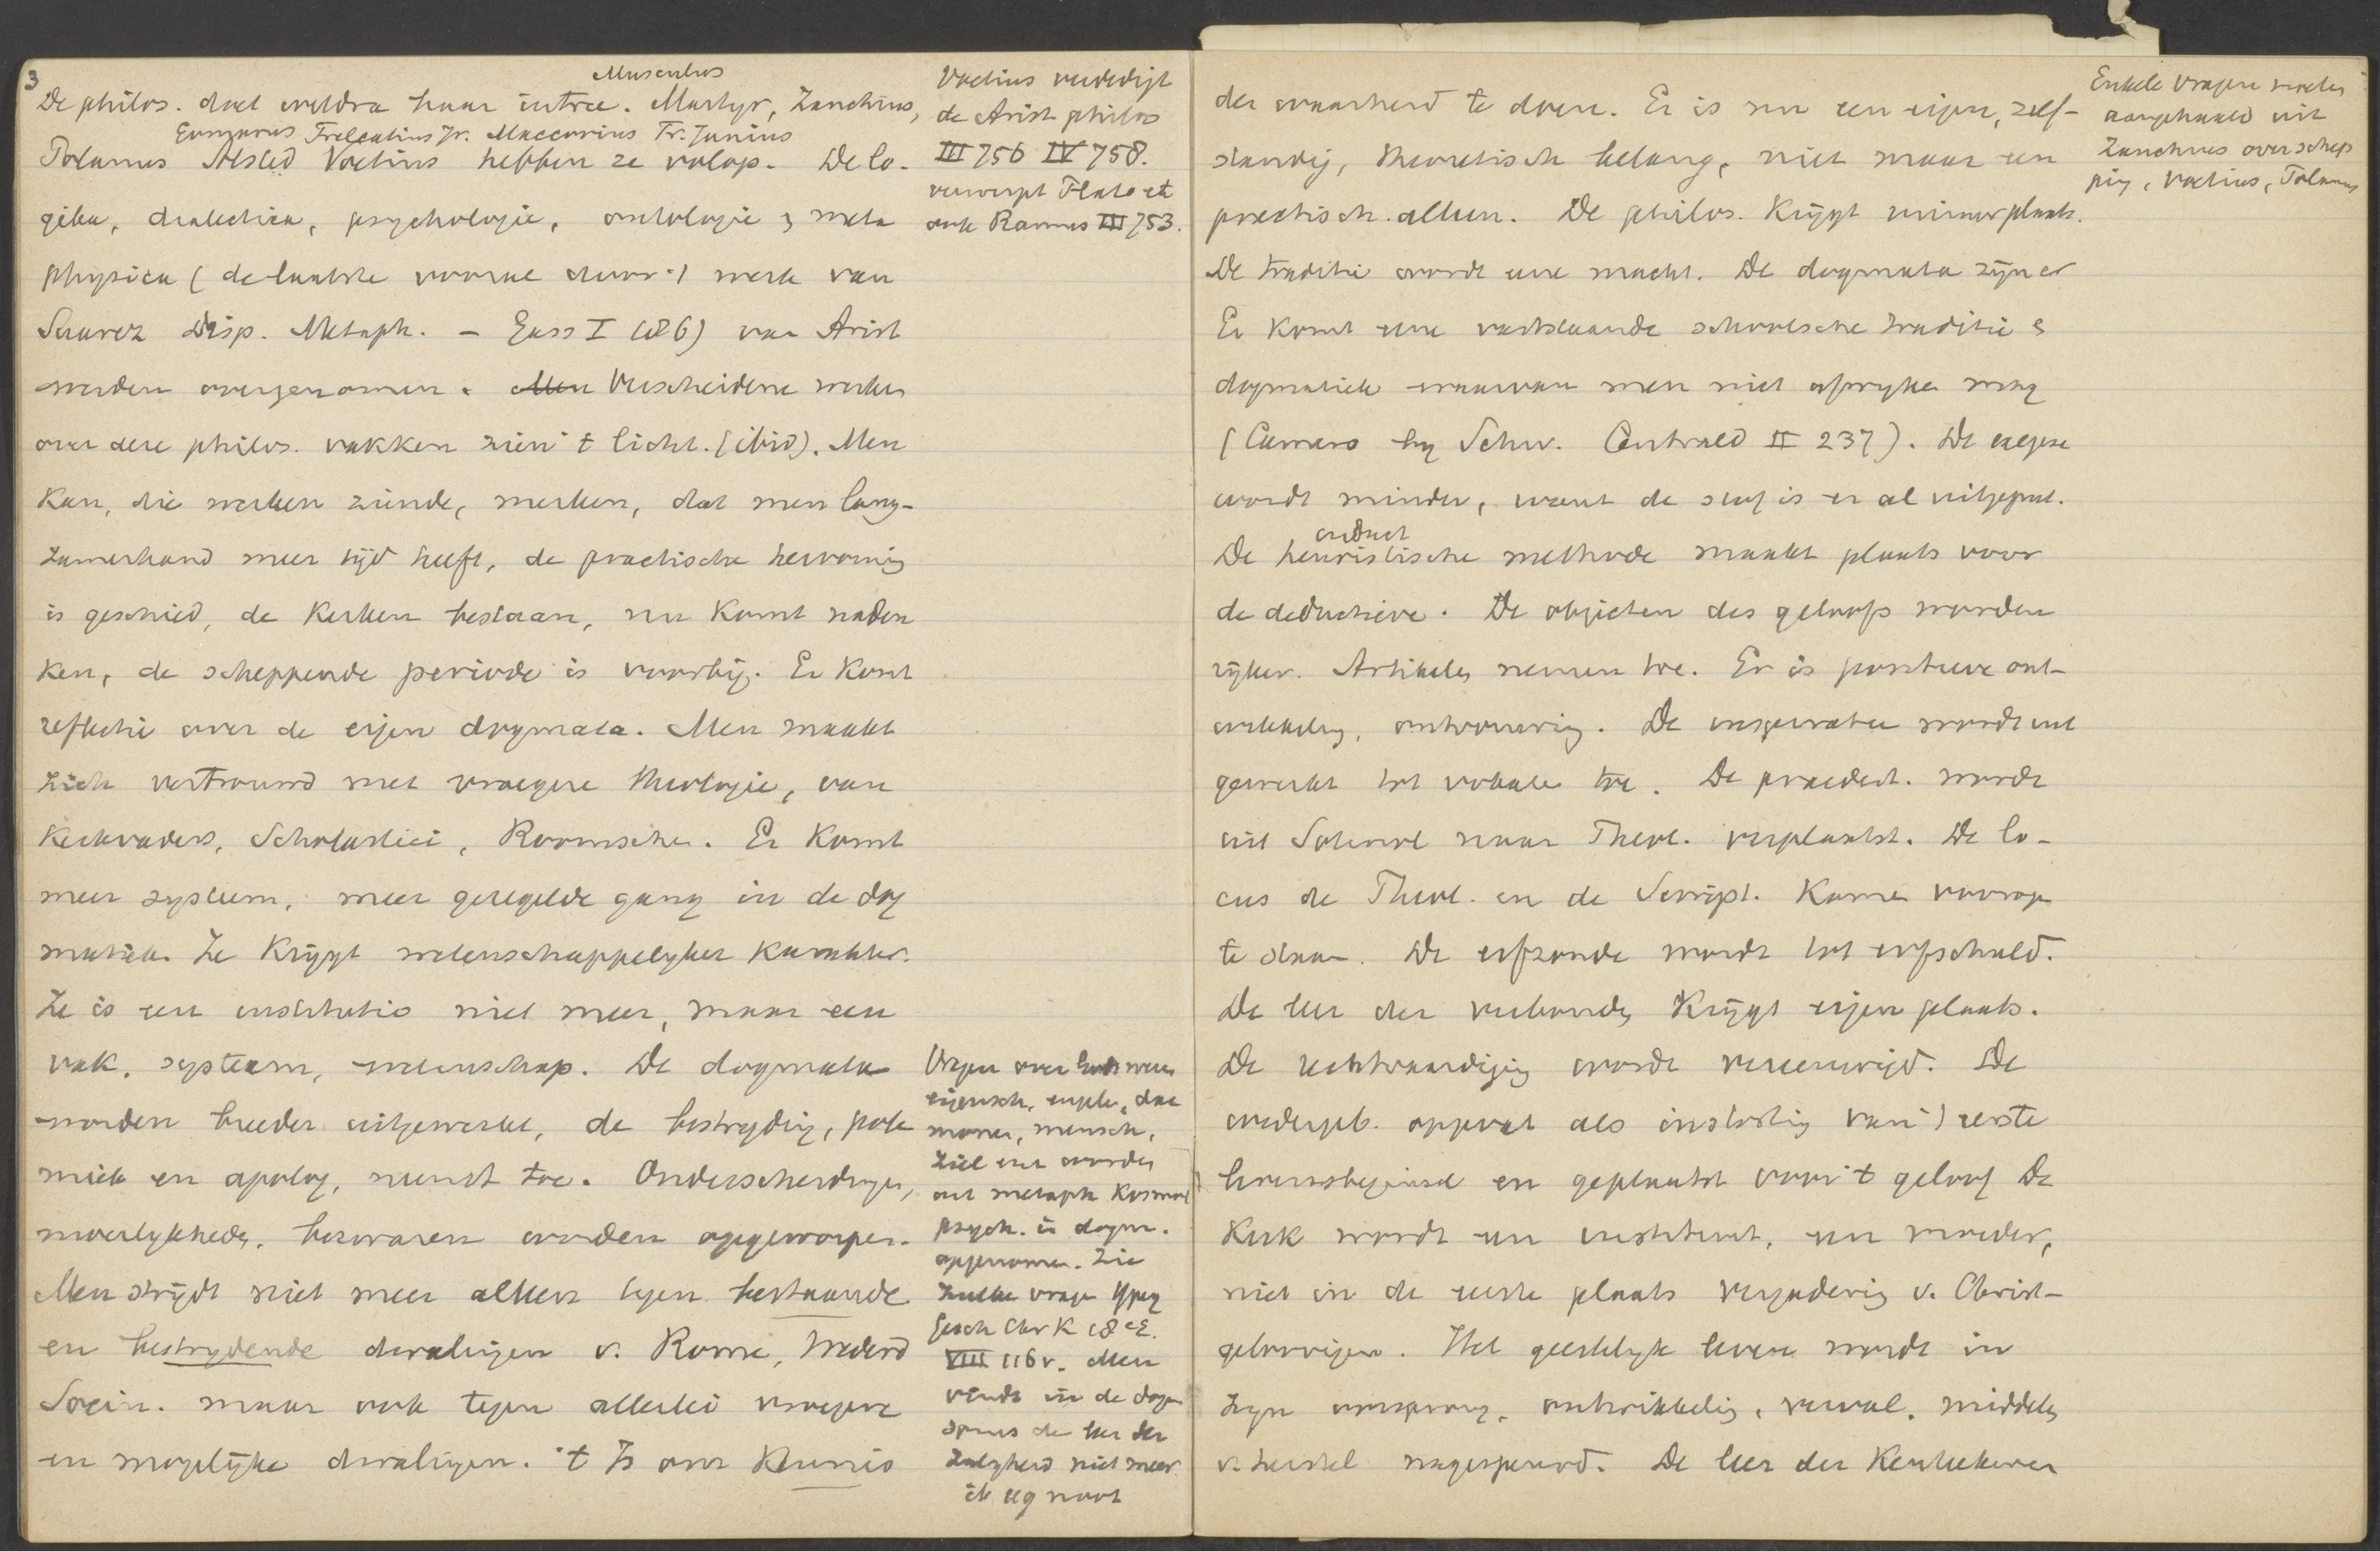 3
Musculus
De philos. doet weldra haar intree. Martyr, Zanchius,
Gomarus Trelcatius Jr. Maccovius Fr. Junius
Polanus Alsted Voetius hebben ze volop. De lo-
gika, dialectica, psychologie, ontologie & meta
physica (de laatste vooral door 't werk van
Suarez Disp. Metaph. - Gass I 186) van Arist
worden overgenomen. Men Verscheidene werken
over deze philos. vakken zien 't licht. (ibid). Men
kan, die werken ziende, merken, dat men lang-
zamerhand meer tijd heeft, de practische hervorming
is geschied, de kerken bestaan, nu komt naden
ken, de scheppende periode is voorbij. Er komt
reflectie over de eigen dogmata. Men maakt
zich vertrouwd met vroegere theologie, van
Kerkvaders, Scholastici, Roomschen. Er komt
meer systeem, meer geregelde gang in de dog
matiek. Ze krijgt wetenschappelyker karakter.
Ze is een institutio niet meer, maar een
vak, systeem, wetenschap. De dogmata
worden breeder uitgewerkt, de bestryding, pole
miek en apolog. neemt toe. Onderscheidingen,
moeilykheden, bezwaren worden opgeworpen.
Men strijdt niet meer alleen tegen bestaande
en bestrydende dwalingen v. Rome, Wederd
Socin. maar ook tegen allerlei vroegere
en mogelijke dwalingen. 't Is om Kennis
Voetius verdedigt
de Arist philos
III 756 IV 758.
verwerpt Plato et
ook Ramus III 753.
Vragen over Gods wezen
eigensch. engelen, dae
monen, mensch,
ziel enz worden
uit metaph kosmol
psych. in dogm.
opgenomen. Zie
zulke vragen Ypey
Gesch Chr K 18e E.
VIII 116 v. Men
vindt in de dogm
soms de leer der
zaligheid niet meer
der waarheid te doen. Er is nu een eigen, zelf-
standig, theoretisch belang, niet maar een
practisch alleen. De philos. krijgt ruimer plaats.
De traditie wordt eene macht. De dogmata zijn er
Er komt eene vaststaande schoolsche traditie &
dogmatiek waarvan men niet afwyken mag
(Camero by Schw. Centrald II 237). De exegese
wordt minder, want de stof is er al uitgeput.
induct
De heuristische methode maakt plaats voor
de deductieve. De objecten des geloofs worden
rijker. Artikelen nemen toe. Er is positieve ont-
wikkeling, ontvouwing. De inspiratie wordt uit
gewerkt tot vokalen toe. De praedest. wordt
uit Soteriol naar Theol. verplaatst. De lo-
cus de Theol. en de Script. komen voorop
te staan. De erfzonde wordt tot erfschuld.
De leer der verbonden krijgt eigen plaats.
De rechtvaardiging wordt vereeuwigd. De
wedergeb. opgevat als instorting van 't eerste
levensbeginsel en geplaatst voor 't geloof De
Kerk wordt een instituut, een moeder,
niet in de eerste plaats vergadering v. Christ-
geloovigen. Het geestelyk leven wordt in
zyn oorsprong, ontwikkeling, verval, middelen
v. herstel nagespeurd. De leer der
Enkele vragen worden
aangehaald uit
Zanchius over schep
ping, Voetius, Polanus